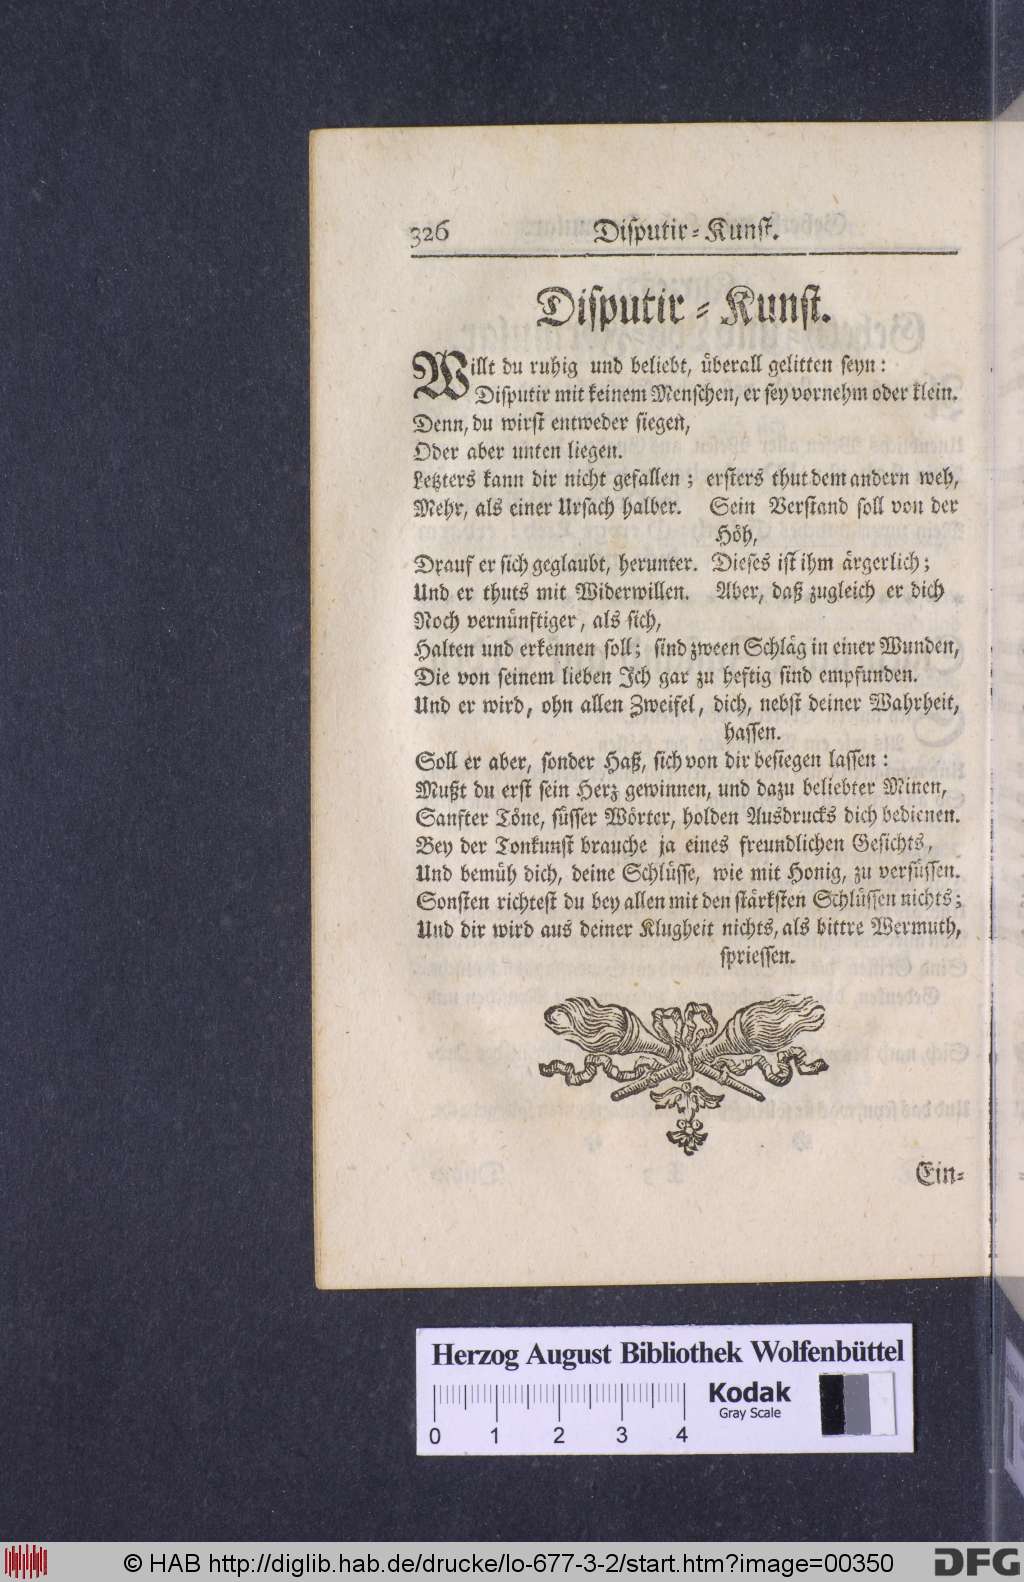 326 Disputir-Kunst.
Disputir-Kunst.
Willt du ruhig und beliebt, überall gelitten seyn:
Disputir mit keinem Menschen, er sey vornehm oder klein.
Denn, du wirst entweder siegen,
Oder aber unten liegen.
Letzters kann dir nicht gefallen; ersters thut dem andern weh,
Mehr, als einer Ursach halber. Sein Verstand soll von der
Höh,
Drauf er sich geglaubt, herunter. Dieses ist ihm ärgerlich;
Und er thuts mit Widerwillen. Aber, daß zugleich er dich
Noch vernünftiger, als sich,
Halten und erkennen soll; sind zween Schläg in einer Wunden,
Die von seinem lieben Ich gar zu heftig sind empfunden.
Und er wird, ohn allen Zweifel, dich, nebst deiner Wahrheit,
hassen.
Soll er aber, sonder Haß, sich von dir besiegen lassen:
Mußt du erst sein Herz gewinnen, und dazu beliebter Minen,
Sanfter Töne, süsser Wörter, holden Ausdrucks dich bedienen.
Bey der Tonkunst brauche ja eines freundlichen Gesichts,
Und bemüh dich, deine Schlüsse, wie mit Honig, zu versüssen.
Sonsten richtest du bey allen mit den stärksten Schlüssen nichts;
Und dir wird aus deiner Klugheit nichts, als bittre Wermuth,
spriessen.
Ein-
Herzog August Bibliothek Wolfenbüttel
Kodak
Gray Scale
0 1 2 3 4
© HAB http://diglib.hab.de/drucke/lo-677-3-2/start.htm?image=00350
DFG